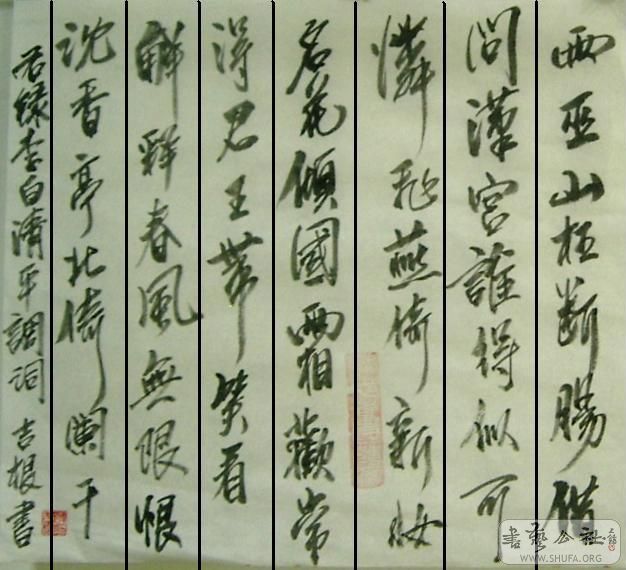 雨巫山枉断腸借
問漢宮誰得似可
憐飛燕倚新妝
名花傾國兩相歡常
得君王帶笑看
解釋春風無限恨
沈香亭北倚闌干
右録李白清平調词 吉根書
書藝公社
WWW.SHUFA.ORG